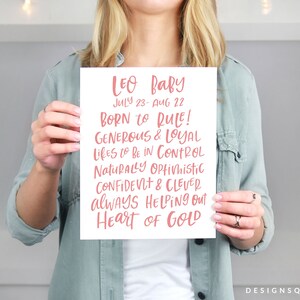 Leo Baby
July 23 - Aug 22
Born to Rule!
Generous & Loyal
Likes to be in Control
Naturally Optimistic
Confident & Clever
Always Helping Out
Heart of Gold
DESIGNSQ